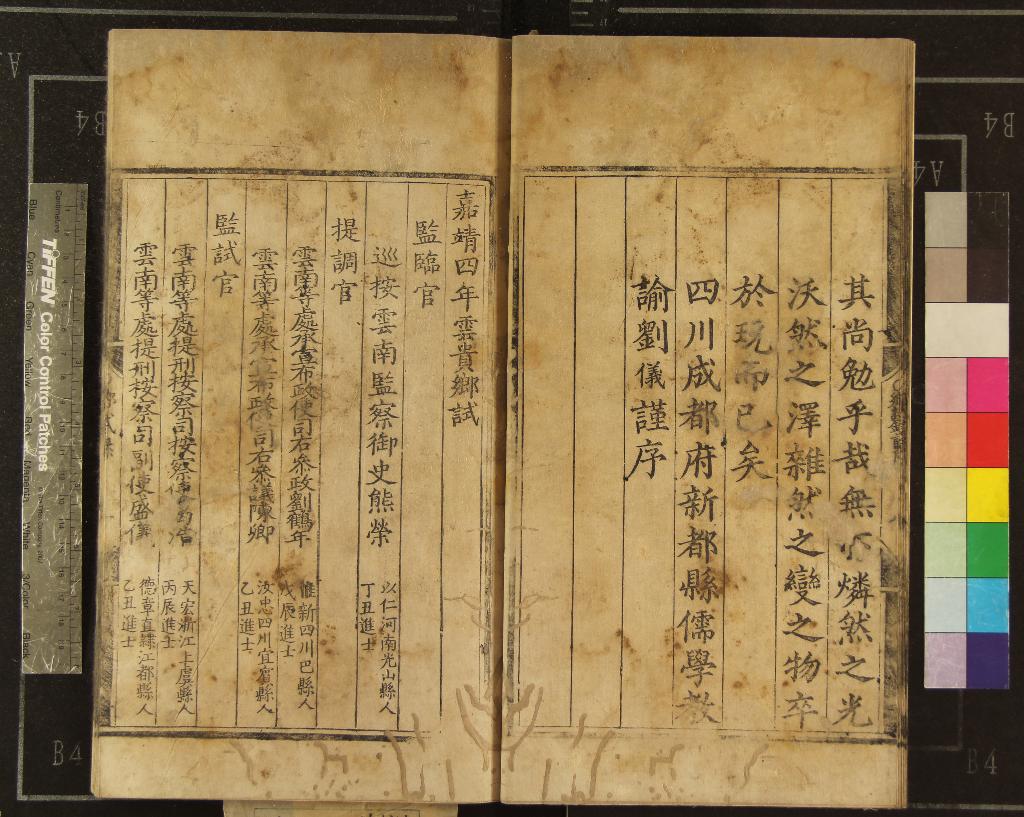 其尚勉乎哉無以燐然之光
沃然之澤雜然之變之物卒
於玩而已矣
四川成都府新都縣儒學教
諭劉儀謹序
嘉靖四年雲貴鄉試
監臨官
巡按雲南監察御史熊榮
以仁河南光山縣人
丁丑進士
提調官
雲南等處承宣布政使司右參政劉鶴年
惟新四川巴縣人
戊辰進士
雲南等處承宣布政使司右參議陳卿
汝忠四川宜賓縣人
乙丑進士
監試官
雲南等處提刑按察司按察使
浩
天宏浙江上虞縣人
丙辰進士
雲南等處提刑按察司副使盛儀
德章直隸江都縣人
乙丑進士
TIFFEN Color Control Patches
Centimetres
Blue
Cyan
Green
Yellow
Red
Magenta
White
3/Color
Black
B4
B4
A4
B4
B4
A